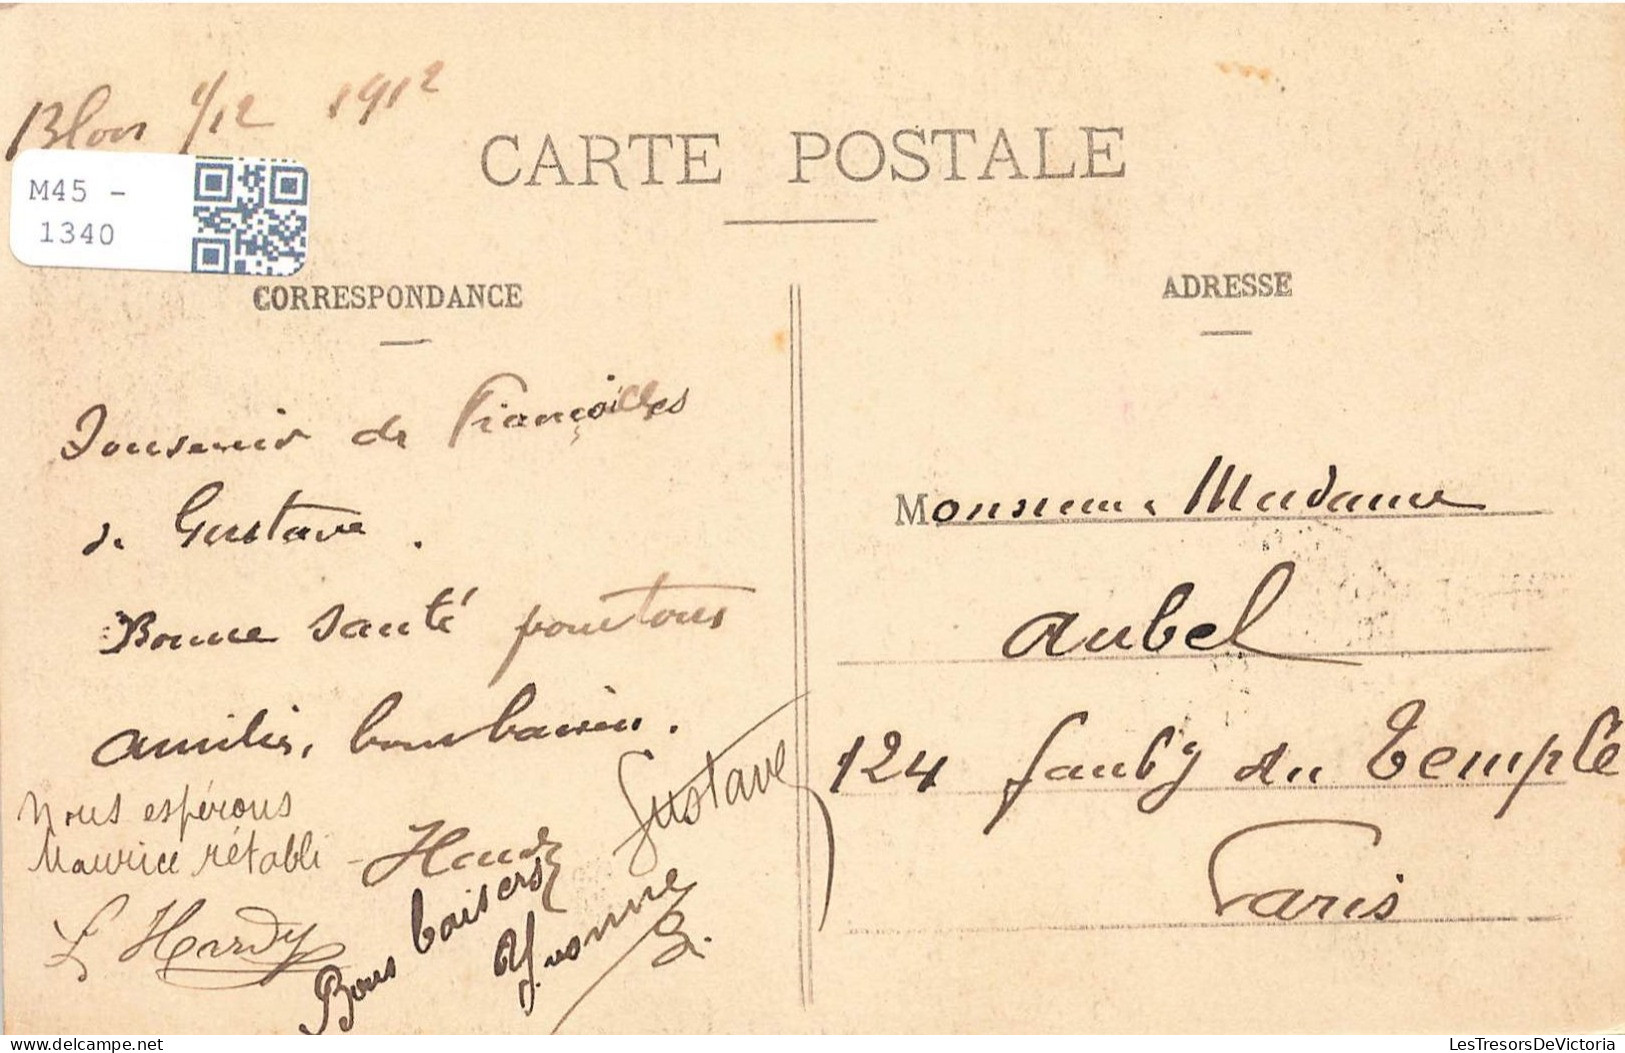 Blois 1/12 1912
M45 -
1340
CARTE POSTALE
CORRESPONDANCE
Souvenir de Françailles
de Gustave.
Bonne santé pour tous
amitiés, bons baisers.
Gustave
Nous espérons
Maurice rétabli - Hardy
L Hardy
Bons baisers
Yvonne
ADRESSE
Monsieur & Madame
Aubel
124 Faubg du Temple
Paris
LesTresorsDeVictoria